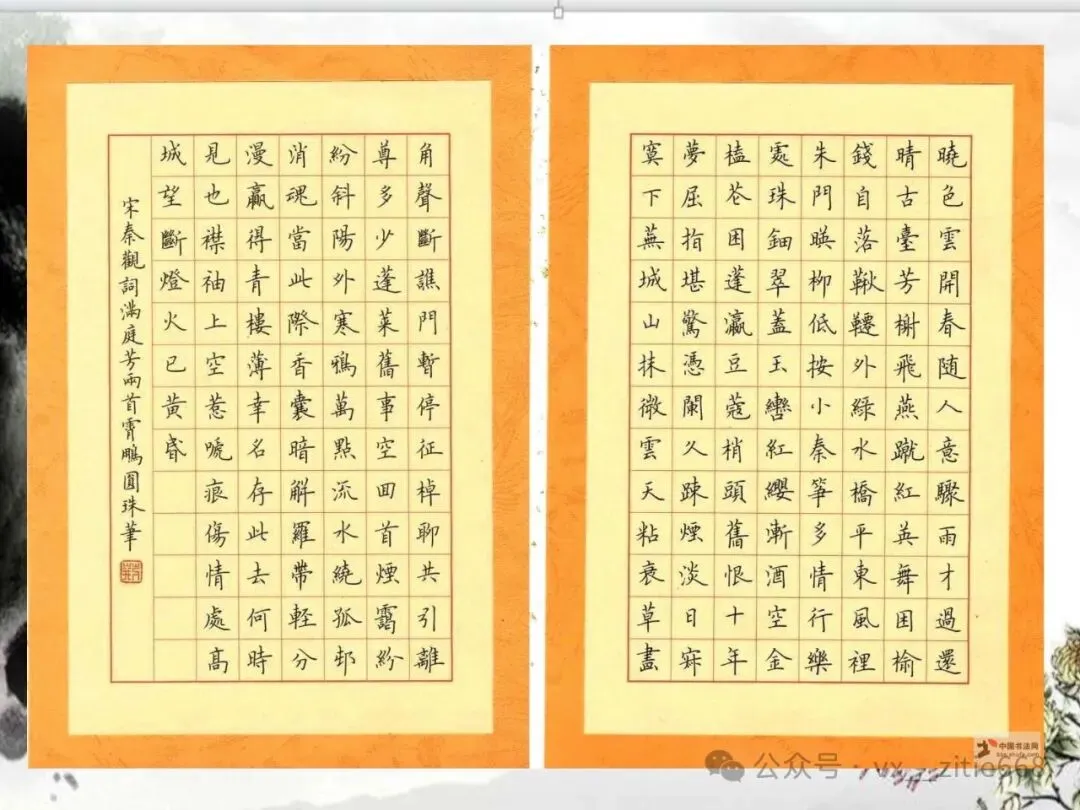 曉色雲開春随人意驟雨才過還
晴古臺芳榭飛燕蹴紅英舞困榆
錢自落鞦韆外綠水橋平東風裡
朱門暎柳低按小秦箏多情行樂
處珠鈿翠蓋玉轡紅纓漸酒空金
榼花困蓬瀛豆蔻梢頭舊恨十年
夢屈指堪驚憑闌久疎煙淡日寂
寞下蕪城山抹微雲天粘衰草畫
角聲斷譙門暫停征棹聊共引離
尊多少蓬萊舊事空回首煙靄紛
紛斜陽外寒鴉萬點流水繞孤邨
消魂當此際香囊暗解羅帶軽分
漫贏得青樓薄幸名存此去何時
見也襟袖上空惹嗁痕傷情處高
城望斷燈火已黃昏
宋秦觀詞滿庭芳兩首霄鵬圓珠筆
中国书法网
公众号 · vx_zitie668